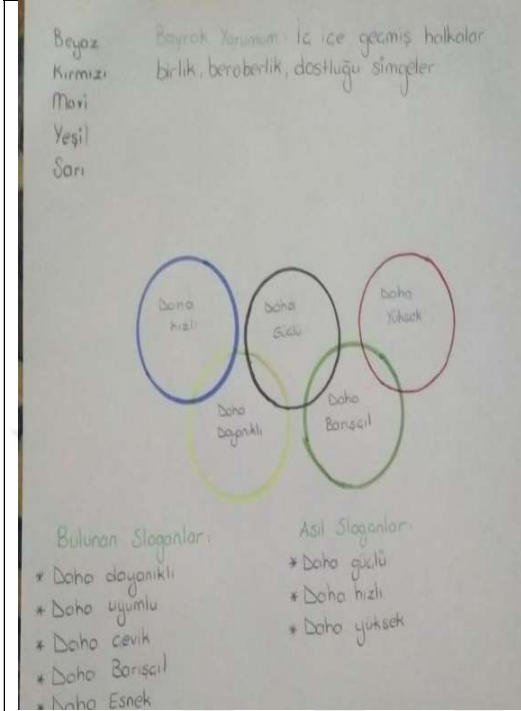 Beyaz
Kırmızı
Mavi
Yeşil
Sarı
Bayrak Yorumum: İç içe geçmiş halkalar
birlik, beraberlik, dostluğu simgeler
Daha
hızlı
Daha
Güçlü
Daha
Yüksek
Daha
Dayanıklı
Daha
Barışçıl
Bulunan Sloganlar:
* Daha dayanıklı
* Daha uyumlu
* Daha çevik
* Daha Barışçıl
* Daha Esnek
Asıl Sloganlar:
* Daha güçlü
* Daha hızlı
* Daha yüksek